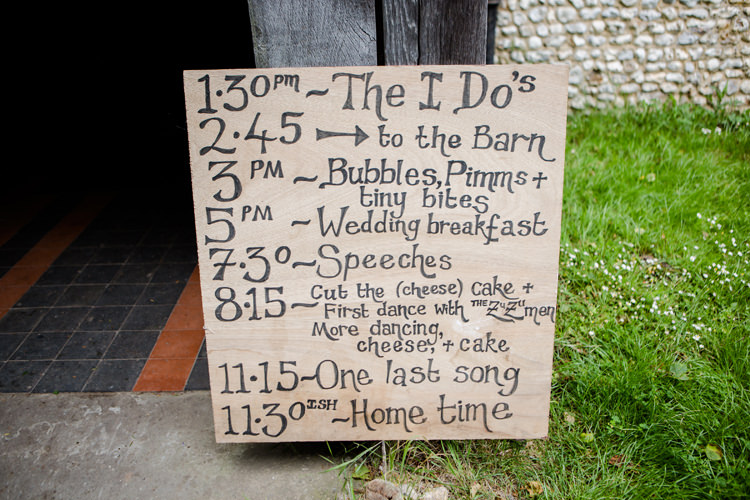 1.30pm ~ The I Do's
2.45 → to the Barn
3 PM ~ Bubbles, Pimms +
tiny bites
5 PM ~ Wedding breakfast
7.30 ~ Speeches
8.15 ~ Cut the (cheese) Cake +
First dance with THE ZuZu men
More dancing,
cheese, + cake
11.15 ~ One last song
11.30 ISH ~ Home time